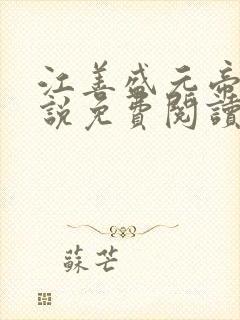 江善盛元帝
說免費閱讀
蘇芒